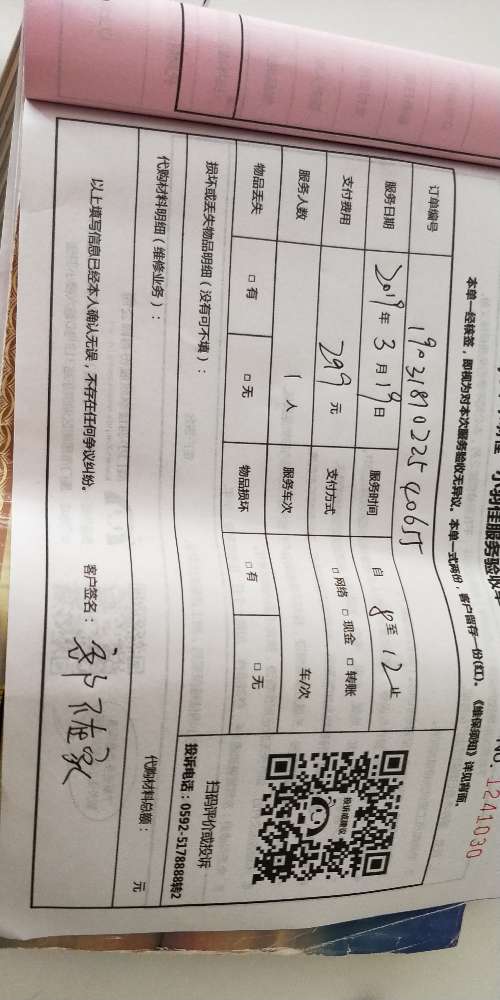 小羽佳服务验收单
No. 1241030
本单一经核签，即视为对本次服务验收无异议。本单一式两份，客户留存一份(红)。《维保须知》详见背面。
订单编号 1903181022540655
服务日期 2019年3月19日 服务时间 自8至12止
支付费用 299元 支付方式 □网络 □现金 □转账
服务人数 1人 服务车次 车/次
物品丢失 □有 □无 物品损坏 □有 □无
损坏或丢失物品明细（没有可不填）：
投诉或建议
扫码评价或投诉
投诉电话：0592-5178888转2
代购材料明细（维修业务）：
代购材料总额： 元
以上填写信息已经本人确认无误，不存在任何争议纠纷。 客户签名：